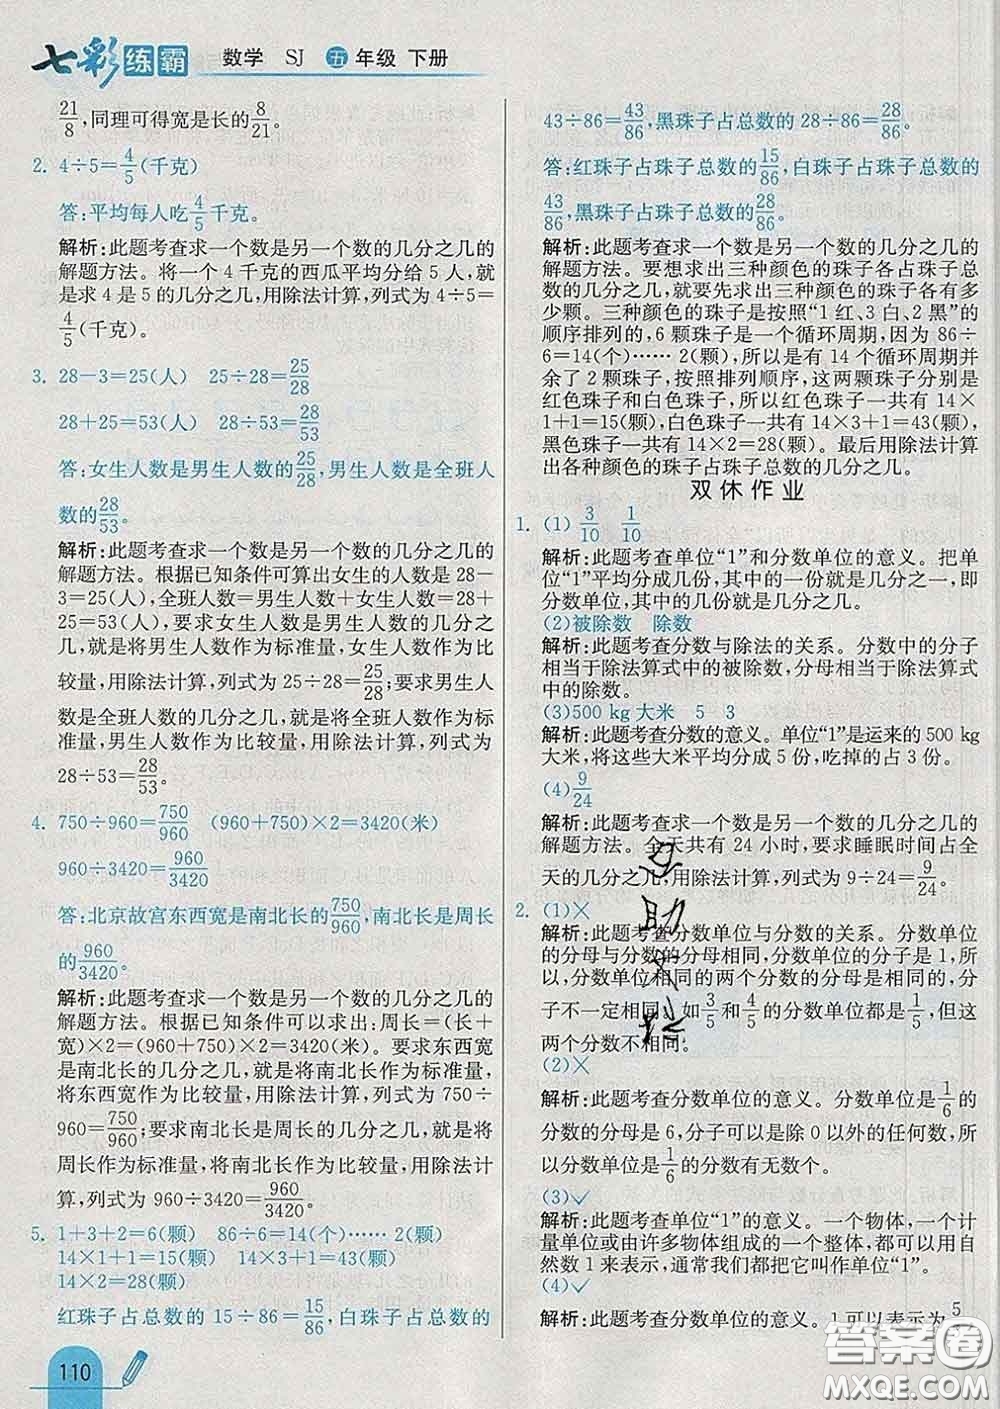 七彩练霸 数学 SJ 五年级 下册
21/8,同理可得宽是长的8/21。
2. 4÷5=4/5(千克)
答:平均每人吃4/5千克。
解析:此题考查求一个数是另一个数的几分之几的
解题方法。将一个 4 千克的西瓜平均分给 5 人,就
是求 4 是 5 的几分之几,用除法计算,列式为 4÷5=
4/5(千克)。
3. 28-3=25(人) 25÷28=25/28
28+25=53(人) 28÷53=28/53
答:女生人数是男生人数的25/28,男生人数是全班人
数的28/53。
解析:此题考查求一个数是另一个数的几分之几的
解题方法。根据已知条件可算出女生的人数是 28-
3=25(人),全班人数=男生人数+女生人数=28+
25=53(人)。要求女生人数是男生人数的几分之
几,就是将男生人数作为标准量,女生人数作为比
较量,用除法计算,列式为 25÷28=25/28;要求男生人
数是全班人数的几分之几,就是将全班人数作为标
准量,男生人数作为比较量,用除法计算,列式为
28÷53=28/53。
4. 750÷960=750/960 (960+750)×2=3420(米)
960÷3420=960/3420
答:北京故宫东西宽是南北长的750/960,南北长是周长
的960/3420。
解析:此题考查求一个数是另一个数的几分之几的
解题方法。根据已知条件可以求出:周长=(长+
宽)×2=(960+750)×2=3420(米)。要求东西宽
是南北长的几分之几,就是将南北长作为标准量,
将东西宽作为比较量,用除法计算,列式为 750÷
960=750/960;要求南北长是周长的几分之几,就是将
周长作为标准量,将南北长作为比较量,用除法计
算,列式为 960÷3420=960/3420。
5. 1+3+2=6(颗) 86÷6=14(个)…… 2(颗)
14×1+1=15(颗) 14×3+1=43(颗)
14×2=28(颗)
红珠子占总数的 15÷86=15/86,白珠子占总数的
110
43÷86=43/86,黑珠子占总数的 28÷86=28/86。
答:红珠子占珠子总数的15/86,白珠子占珠子总数的
43/86,黑珠子占珠子总数的28/86。
解析:此题考查求一个数是另一个数的几分之几的
解题方法。要想求出三种颜色的珠子各占珠子总
数的几分之几,就要先求出三种颜色的珠子各有多
少颗。三种颜色的珠子是按照“1 红、3 白、2 黑”的
顺序排列的,6 颗珠子是一个循环周期,因为 86÷
6=14(个)…… 2(颗),所以是有 14 个循环周期并
余了 2 颗珠子,按照排列顺序,这两颗珠子分别是
红色珠子和白色珠子,所以红色珠子一共有 14×
1+1=15(颗),白色珠子一共有 14×3+1=43(颗),
黑色珠子一共有 14×2=28(颗)。最后用除法计算
出各种颜色的珠子占珠子总数的几分之几。
双休作业
1. (1) 3/10 1/10
解析:此题考查单位“1”和分数单位的意义。把单
位“1”平均分成几份,其中的一份就是几分之一,即
分数单位,其中的几份就是几分之几。
(2)被除数 除数
解析:此题考查分数与除法的关系。分数中的分子
相当于除法算式中的被除数,分母相当于除法算式
中的除数。
(3)500 kg大米 5 3
解析:此题考查分数的意义。单位“1”是运来的 500 kg
大米,将这些大米平均分成 5 份,吃掉的占 3 份。
(4)9/24
解析:此题考查求一个数是另一个数的几分之几的
解题方法。全天共有 24 小时,要求睡眠时间占全
天的几分之几,用除法计算,列式为 9÷24=9/24。
2. (1)×
解析:此题考查分数单位与分数的关系。分数单位
的分母与分数的分母相同,分数单位的分子是 1,所
以,分数单位相同的两个分数的分母是相同的,分
子不一定相同。如3/5和4/5的分数单位都是1/5,但这
两个分数不相同。
(2)×
解析:此题考查分数单位的意义。分数单位是1/6的
分数的分母是 6,分子可以是除 0 以外的任何数,所
以分数单位是1/6的分数有无数个。
(3)✓
解析:此题考查单位“1”的意义。一个物体,一个计
量单位或由许多物体组成的一个整体,都可以用自
然数 1 来表示,通常我们都把它叫作单位“1”。
(4)✓
解析:此题考查分数单位的意义。1 可以表示为5
答案圈
MXQE.COM